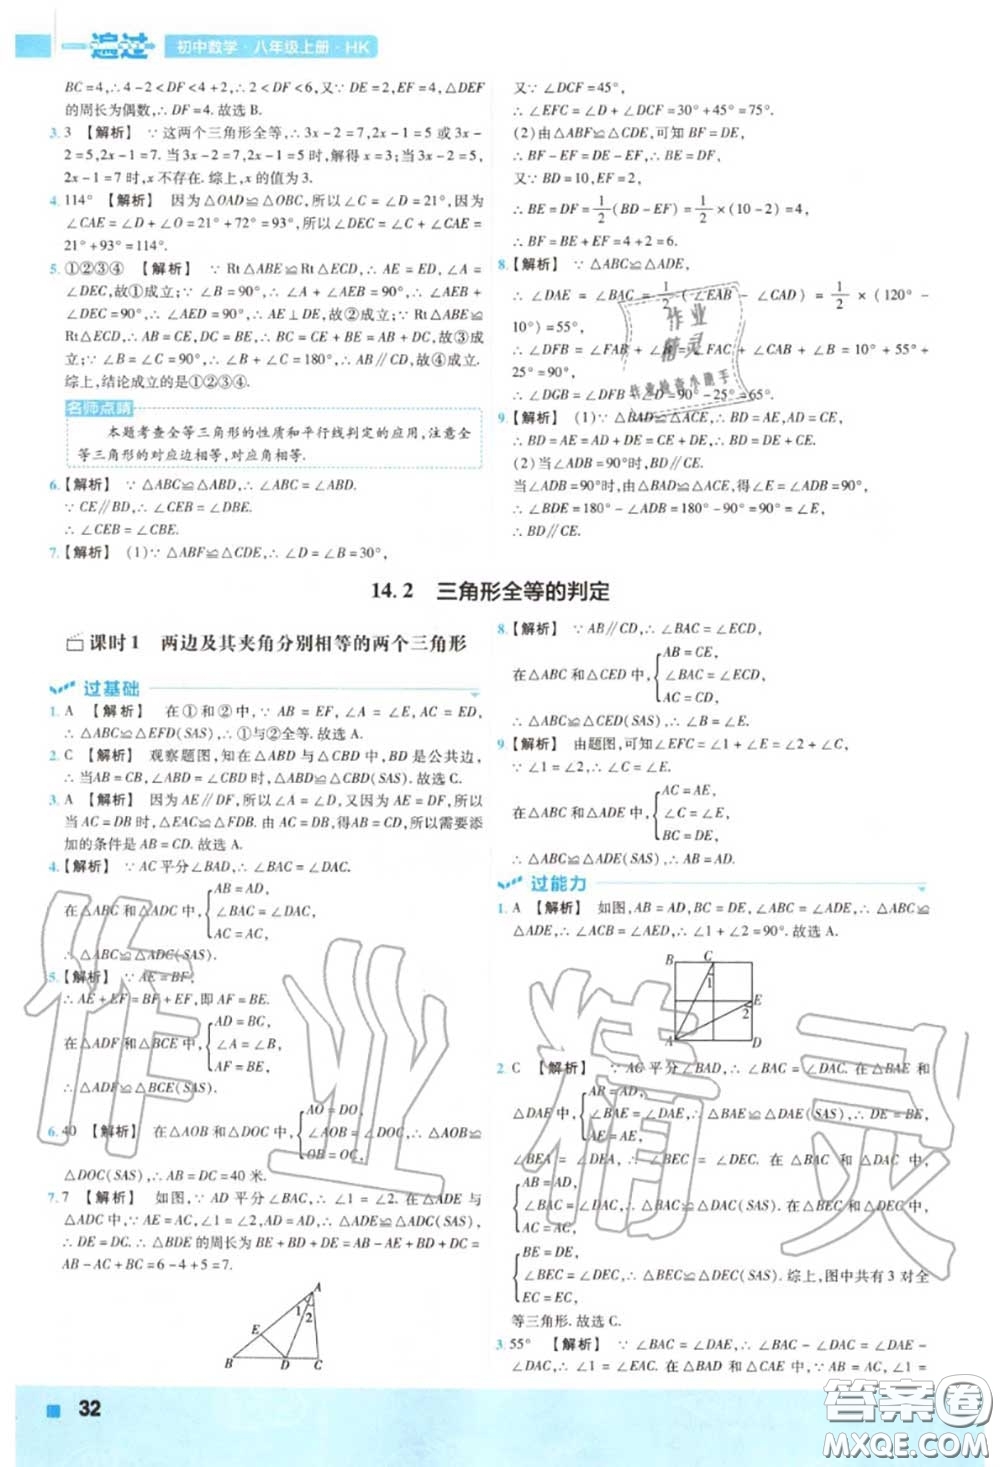 一遍过 初中数学·八年级上册·HK
BC=4,∴4-2<DF<4+2,∴2<DF<6,又∵DE=2,EF=4,△DEF
的周长为偶数,∴DF=4.故选B.
3. 3 【解析】 ∵这两个三角形全等,∴3x-2=7,2x-1=5或3x-
2=5,2x-1=7.当3x-2=7,2x-1=5时,解得x=3;当3x-2=5,
2x-1=7时,x不存在.综上,x的值为3.
4. 114° 【解析】 因为△OAD≌△OBC,所以∠C=∠D=21°,所以
∠CAE=∠D+∠O=21°+72°=93°,所以∠DEC=∠C+∠CAE=
21°+93°=114°.
5. ①②③④ 【解析】 ∵Rt△ABE≌Rt△ECD,∴AE=ED,∠A=
∠DEC,故①成立;∵∠B=90°,∴∠A+∠AEB=90°,∴∠AEB+
∠DEC=90°,∴∠AED=90°,∴AE⊥DE,故②成立;∵Rt△ABE≌
Rt△ECD,∴AB=CE,DC=BE,∴BC=CE+BE=AB+DC,故③成
立;∵∠B=∠C=90°,∴∠B+∠C=180°,∴AB∥CD,故④成立.
综上,结论成立的是①②③④.
名师点睛
本题考查全等三角形的性质和平行线判定的应用,注意全
等三角形的对应边相等,对应角相等.
6.【解析】 ∵△ABC≌△ABD,∴∠ABC=∠ABD.
∵CE∥BD,∴∠CEB=∠DBE.
∴∠CEB=∠CBE.
7.【解析】 (1)∵△ABF≌△CDE,∴∠D=∠B=30°,
又∵∠DCF=45°,
∴∠EFC=∠D+∠DCF=30°+45°=75°.
(2)由△ABF≌△CDE,可知BF=DE,
∴BF-EF=DE-EF,∴BE=DF,
又∵BD=10,EF=2,
∴BE=DF=1/2(BD-EF)=1/2×(10-2)=4,
∴BF=BE+EF=4+2=6.
8.【解析】 ∵△ABC≌△ADE,
∴∠DAE=∠BAC=1/2(∠EAB-∠CAD)=1/2×(120°-
10°)=55°,
∴∠DFB=∠FAB+∠B=∠FAC+∠CAB+∠B=10°+55°+
25°=90°,
∴∠DGB=∠DFB-∠D=90°-25°=65°.
9.【解析】 (1)∵△BAD≌△ACE,∴BD=AE,AD=CE,
∴BD=AE=AD+DE=CE+DE,∴BD=DE+CE.
(2)当∠ADB=90°时,BD∥CE.
当∠ADB=90°时,由△BAD≌△ACE,得∠E=∠ADB=90°,
∴∠BDE=180°-∠ADB=180°-90°=90°=∠E,
∴BD∥CE.
14.2 三角形全等的判定
课时1 两边及其夹角分别相等的两个三角形
过基础
1. A 【解析】 在①和②中,∵AB=EF,∠A=∠E,AC=ED,
∴△ABC≌△EFD(SAS),∴①与②全等.故选A.
2. C 【解析】 观察题图,知在△ABD与△CBD中,BD是公共边,
∴当AB=CB,∠ABD=∠CBD时,△ABD≌△CBD.故选C.
3. A 【解析】 因为AE∥DF,所以∠A=∠D,又因为AE=DF,所以
当AC=DB时,△EAC≌△FDB.由AC=DB,得AB=CD,所以需要添
加的条件是AB=CD.故选A.
4.【解析】 ∵AC平分∠BAD,∴∠BAC=∠DAC.
在△ABC和△ADC中,{AB=AD,
∠BAC=∠DAC,
AC=AC,
∴△ABC≌△ADC(SAS).
5.【解析】 ∵AE=BF,
∴AE+EF=BF+EF,即AF=BE.
在△ADF和△BCE中,{AD=BC,
∠A=∠B,
AF=BE,
∴△ADF≌△BCE(SAS).
6. 40 【解析】 在△AOB和△DOC中,{AO=DO,
∠AOB=∠DOC,
OB=OC,
∴△AOB≌
△DOC(SAS),∴AB=DC=40米.
7. 7 【解析】 如图,∵AD平分∠BAC,∴∠1=∠2.在△ADE与
△ADC中,∵AE=AC,∠1=∠2,AD=AD,∴△ADE≌△ADC(SAS),
∴DE=DC,∴△BDE的周长为BE+BD+DE=AB-AE+BD+DC=
AB-AC+BC=6-4+5=7.
A
1 2
E
B D C
8.【解析】 ∵AB∥CD,∴∠BAC=∠ECD.
在△ABC和△CED中,{AB=CE,
∠BAC=∠ECD,
AC=CD,
∴△ABC≌△CED(SAS),∴∠B=∠E.
9.【解析】 由题图,可知∠EFC=∠1+∠E=∠2+∠C,
∵∠1=∠2,∴∠C=∠E.
在△ABC和△ADE中,{AC=AE,
∠C=∠E,
BC=DE,
∴△ABC≌△ADE(SAS).
过能力
1. A 【解析】 如图,AB=AD,BC=DE,∠ABC=∠ADE,∴△ABC≌
△ADE,∴∠ACB=∠AED,∴∠1+∠2=90°.故选A.
B C
1
E
2
A D
2. C 【解析】 ∵AC平分∠BAD,∴∠BAC=∠DAC.在△BAE和
△DAE中,{AB=AD,
∠BAE=∠DAE,
AE=AE,
∴△BAE≌△DAE(SAS),∴DE=BE,
∠BEA=∠DEA,∴∠BEC=∠DEC.在△BAC和△DAC中,
{AB=AD,
∠BAC=∠DAC,
AC=AC,
∴△BAC≌△DAC(SAS).在△BEC和△DEC中,
{BE=DE,
∠BEC=∠DEC,
EC=EC,
∴△BEC≌△DEC(SAS).综上,图中共有3对全
等三角形.故选C.
3. 55° 【解析】 ∵∠BAC=∠DAE,∴∠BAC-∠DAC=∠DAE-
∠DAC,∴∠1=∠EAC.在△BAD和△CAE中,
32
作业
精灵
作业检查小助手
作业精灵
答案圈
MXQE.COM